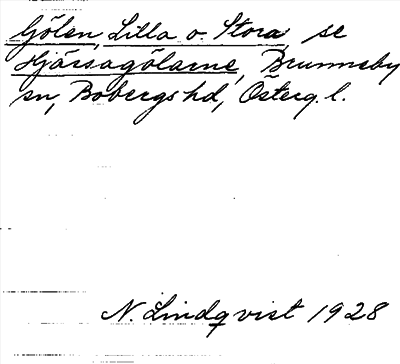 Gölen, Lilla o. Stora se
Hjärsagölarne, Brunneby
sn, Bobergs hd, Österg. l.
N. Lindqvist 1928